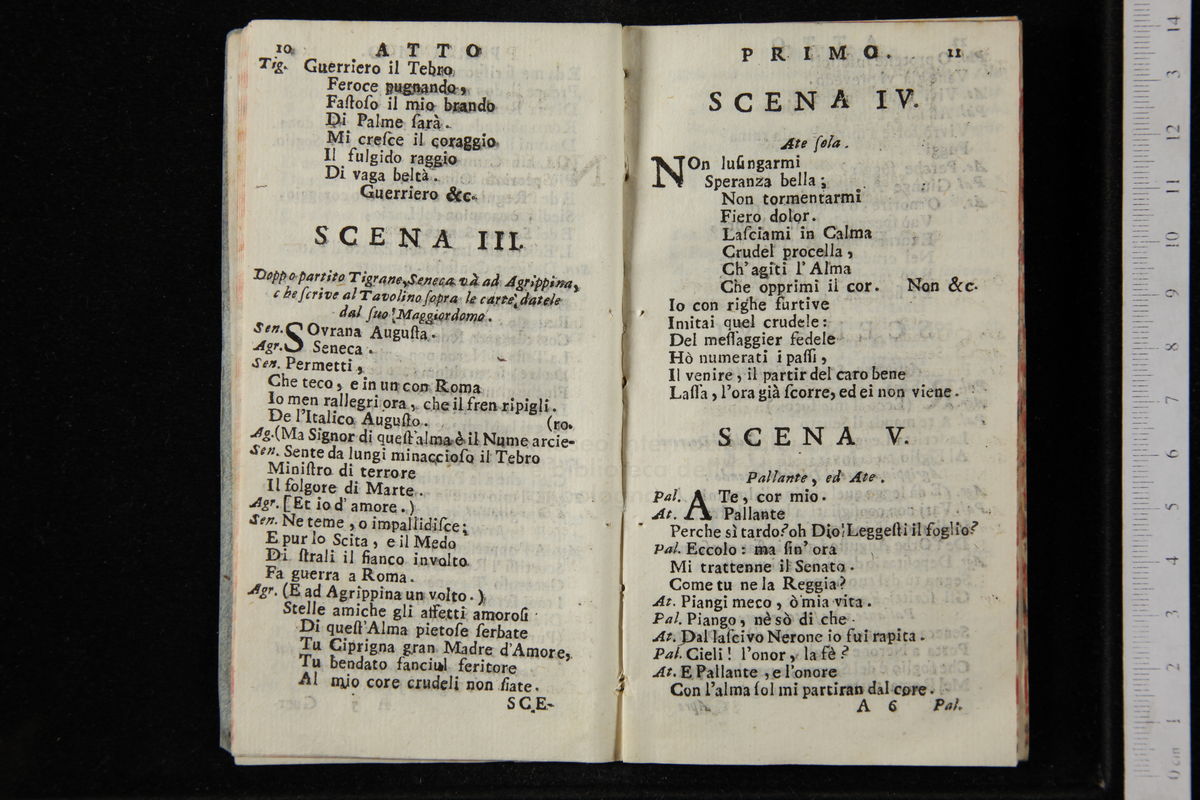 10 ATTO
Tig. Guerriero il Tebro
Feroce pugnando,
Faſtoſo il mio brando
Di Palme ſarà.
Mi creſce il coraggio
Il fulgido raggio
Di vaga beltà.
Guerriero &c.
SCENA III.
Doppo partito Tigrane, Seneca và ad Agrippina,
che ſcrive al Tavolino ſopra le carte, datele
dal ſuo Maggiordomo.
Sen. SOvrana Auguſta.
Agr. Seneca.
Sen. Permetti,
Che teco, e in un con Roma
Io men rallegri ora, che il fren ripigli.
De l'Italico Auguſto. (ro.
Ag. (Ma Signor di queſt'alma è il Nume arcie-
Sen. Sente da lungi minaccioſo il Tebro
Miniſtro di terrore
Il folgore di Marte.
Agr. [Et io d'amore.)
Sen. Ne teme, o impallidiſce;
E pur lo Scita, e il Medo
Di ſtrali il fianco involto
Fa guerra a Roma.
Agr. (E ad Agrippina un volto.)
Stelle amiche gli affetti amoroſi
Di queſt'Alma pietoſe ſerbate
Tu Ciprigna gran Madre d'Amore,
Tu bendato fanciul feritore
Al mio core crudeli non ſiate.
SCE-
PRIMO. 11
SCENA IV.
Ate ſola.
NOn luſingarmi
Speranza bella;
Non tormentarmi
Fiero dolor.
Laſciami in Calma
Crudel procella,
Ch'agiti l'Alma
Che opprimi il cor. Non &c.
Io con righe furtive
Imitai quel crudele:
Del meſſaggier fedele
Hò numerati i paſſi,
Il venire, il partir del caro bene
Laſſa, l'ora già ſcorre, ed ei non viene.
SCENA V.
Pallante, ed Ate.
Pal. ATe, cor mio.
At. Pallante
Perche sì tardo? oh Dio! Leggeſti il foglio?
Pal. Eccolo: ma ſin'ora
Mi trattenne il Senato.
Come tu ne la Reggia?
At. Piangi meco, ò mia vita.
Pal. Piango, nè sò di che.
At. Dal laſcivo Nerone io fui rapita.
Pal. Cieli! l'onor, la fè?
At. E Pallante, e l'onore
Con l'alma ſol mi partiran dal core.
A 6 Pal.